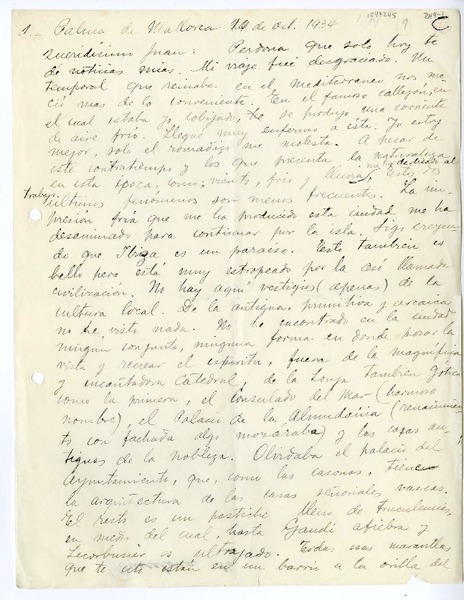 1. Palma de Mallorca 20 de oct. 1934
Queridísimo Juan: Perdona que solo hoy te
dé noticias mías. Mi viaje fué desgraciado. Un
temporal que reinaba en el mediterraneo nos me-
ció mas de lo conveniente. En el famoso callejón, en
el cual estaba yo, cobijado, se produjo una corriente
de aire frío. Llegué muy enfermo a ésta. Ya estoy
mejor, solo el romadizo me molesta. A pesar de
este contratiempo y los que presenta la naturaleza
en esta época, como; viento, frío y lluvia, estos dos
me he dedicado al
trabajo.
ultimos fenomenos son menos frecuentes. La im-
presión fría que me ha producido esta ciudad me ha
desanimado para continuar por la isla. Sigo creyen-
do que Ibiza, es un paraiso. Esto tambien es
bello pero está muy estropeado por la así llamada
civilización. No hay aquí vestigios (apenas) de la
cultura local. De la antigua, primitiva y arcaica
no he visto nada. No he encontrado en la ciudad
ningún conjunto, ninguna forma en donde posar la
vista y recrear el espiritu, fuera de la magnífica
y encantadora Catedral, de la Lonja tambien gotica
como la primera, el consulado del Mar (hermoso
nombre), el Palacio de la Almudaina (renacimien-
to con fachada algo mozárabe) y las casas an-
tiguas de la nobleza. Olvidaba el palacio del
Ayuntamiento, que, como las casonas, tiene
la arquitectura de las casas señoriales vascas.
El resto es un pastiche lleno de truculencias,
en medio del cual, hasta Gaudi afiebra y
Lecorbusier es ultrajado. Todas esas maravillas
que te cito están en un barrio a la orilla del